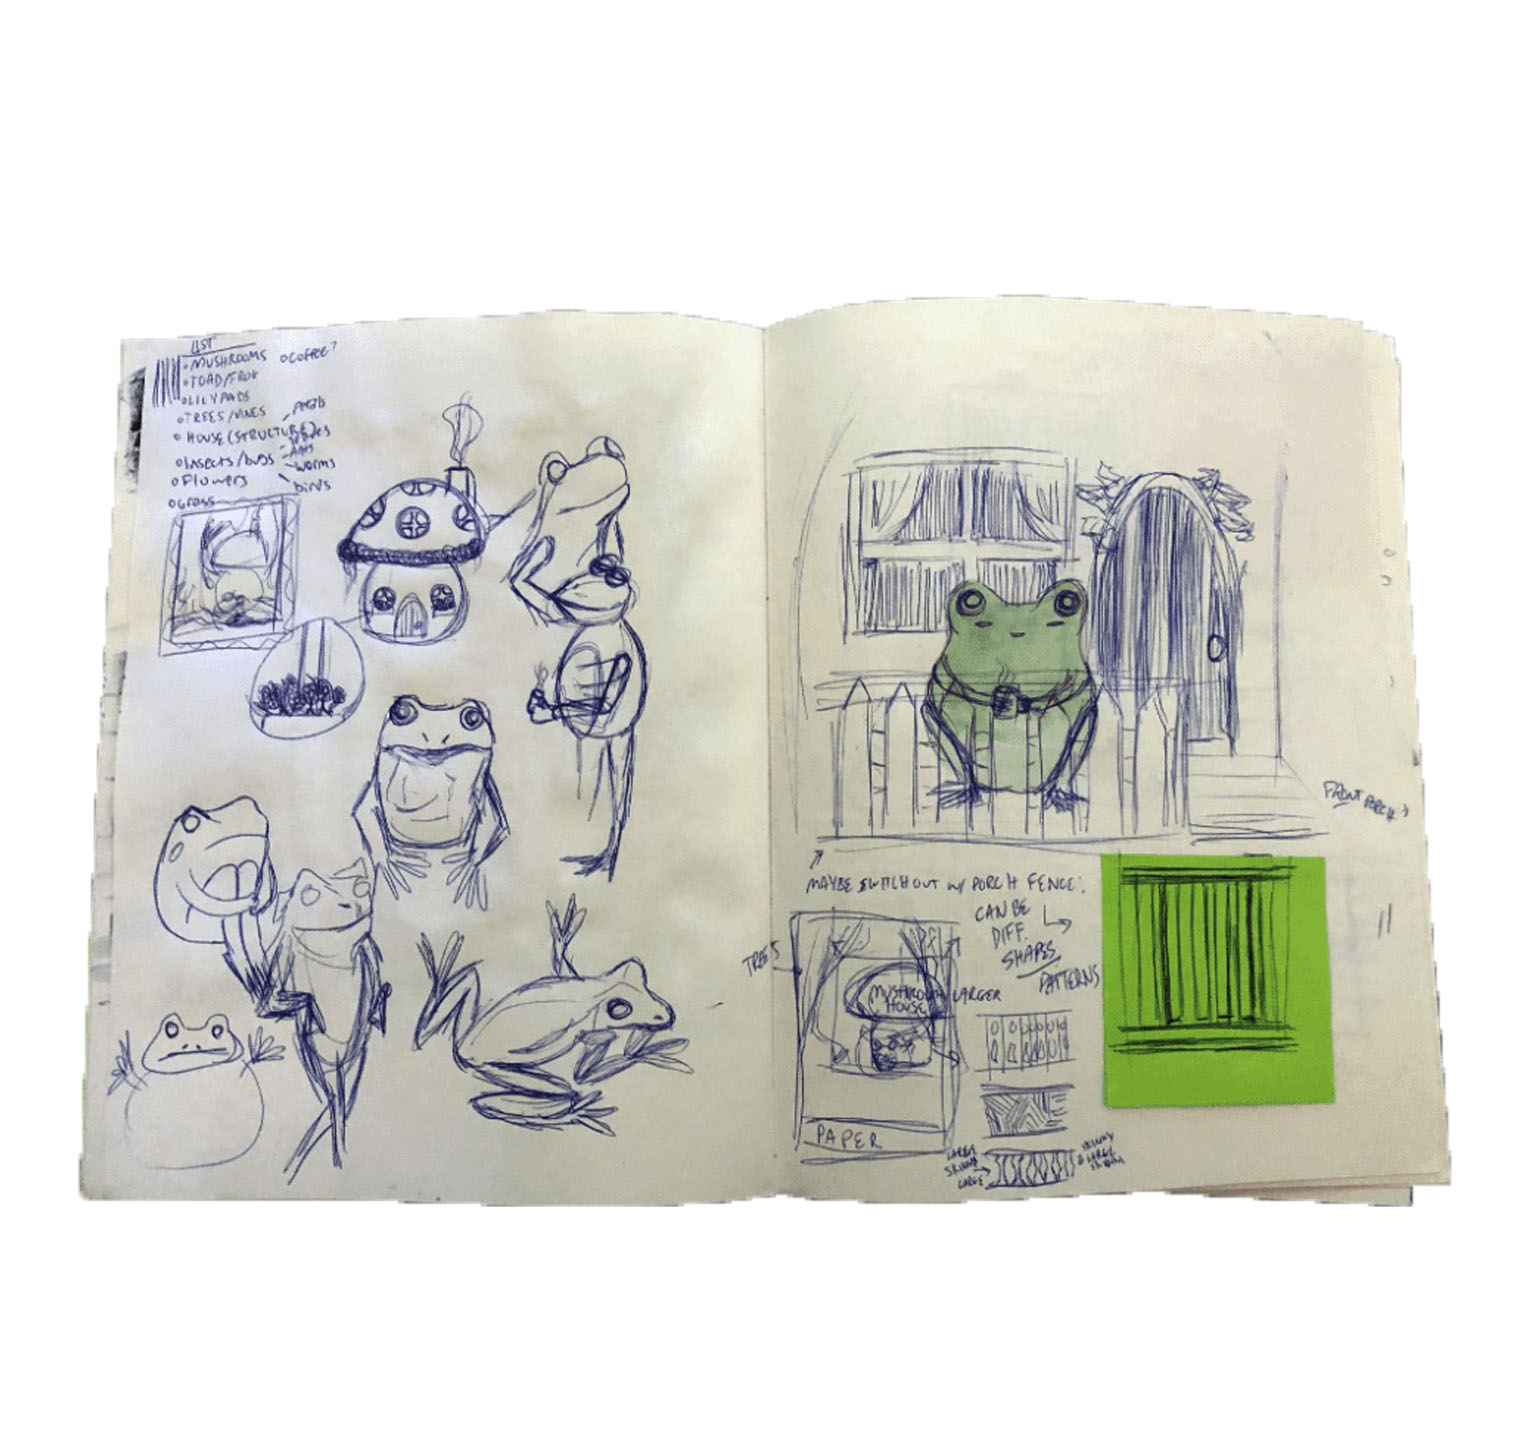 LIST
MUSHROOMS
COFFEE?
TOAD/FROG
LILYPADS
TREES/VINES
HOUSE (STRUCTURE)
INSECTS/BUGS
worms
FLOWERS
birds
GRASS
FRONT PORCH?
MAYBE SWITCH OUT W/ PORCH FENCE:
CAN BE
DIFF.
SHAPES
PATTERNS
TREES
MUSHROOM
HOUSE
LARGER
PAPER
LARGE
SKINNY
LARGE
SKINNY
LARGE